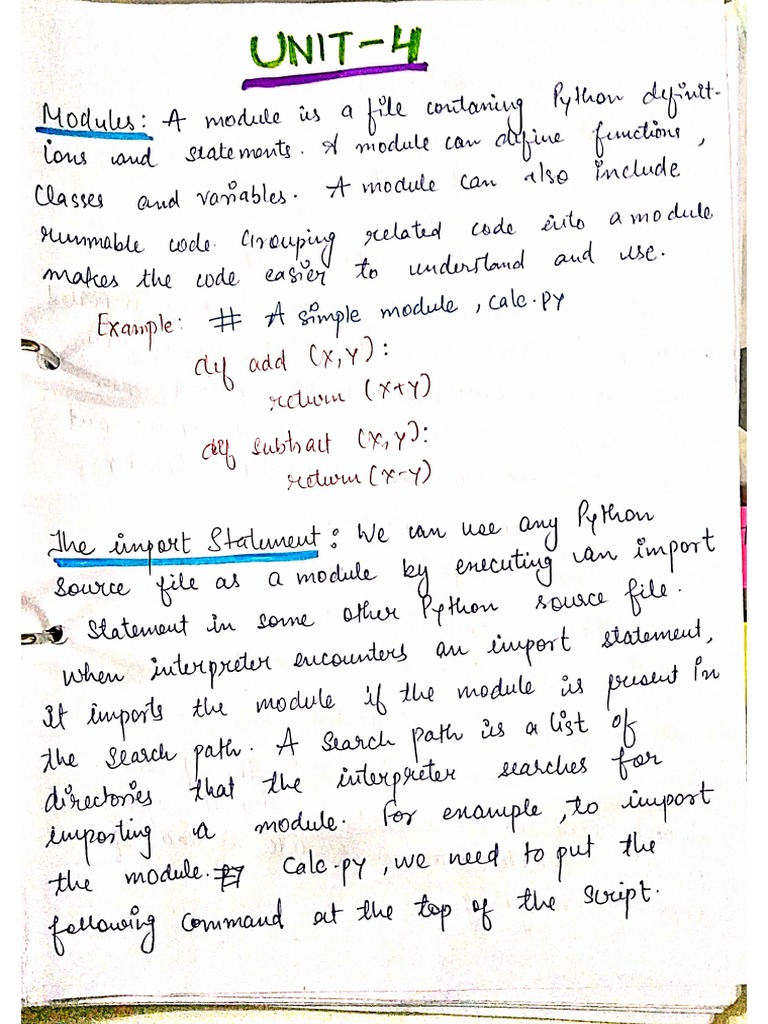 UNIT-4
Modules: A module is a file contaning Python definit-
ions and statements. A module can define functions,
Classes and variables. A module can also include
runnable code. Grouping related code into a module
makes the code easier to understand and use.
Example: # A simple module, calc.py
def add (x,y):
return (x+y)
def subtract (x,y):
return (x-y)
The import Statement: We can use any Python
source file as a module by executing an import
statement in some other Python source file.
When interpreter encounters an import statement,
it imports the module if the module is present in
the search path. A search path is a list of
directories that the interpreter searches for
importing a module. For example, to import
the module. calc.py, we need to put the
following command at the top of the script.